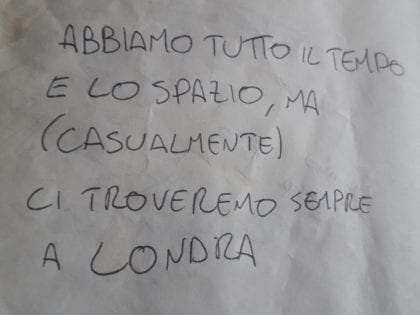 ABBIAMO TUTTO IL TEMPO
E LO SPAZIO, MA
(CASUALMENTE)
CI TROVEREMO SEMPRE
A LONDRA